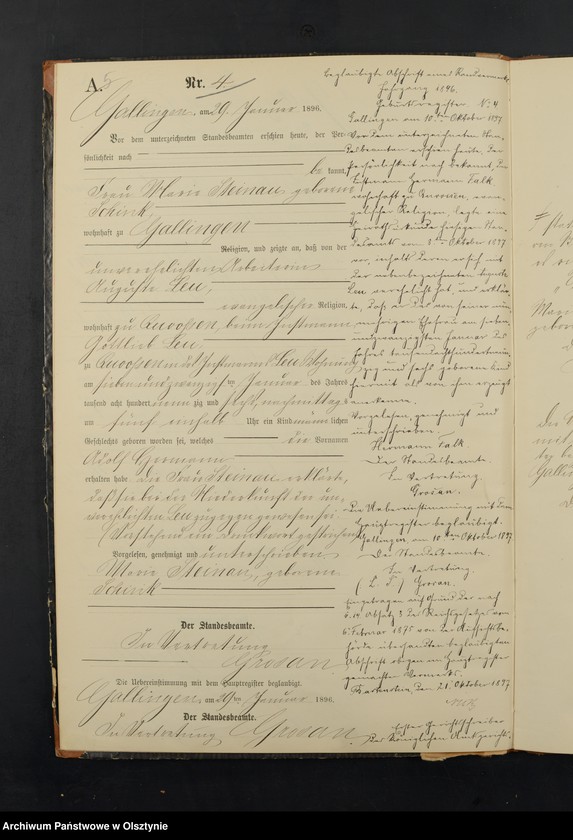 A.
Nr. 4.
Gallingen, am 29. Januar 1896.
Vor dem unterzeichneten Standesbeamten erschien heute, der Per-
sönlichkeit nach
be kannt,
Frau Marie Steinau geborene
Schink,
wohnhaft zu Gallingen
Religion, und zeigte an, daß von der
unverehelichten Arbeiterin
Auguste Leu,
evangelischer Religion,
wohnhaft zu Quoossen, beim
Gottlieb Leu,
zu Quoossen in des Leu Wohnung
am sieben und zwanzig ten Januar des Jahres
tausend acht hundert neun zig und sechs nachmittags
um fünf einhalb Uhr ein Kind männ lichen
Geschlechts geboren worden sei, welches die Vornamen
Adolf Hermann
erhalten habe. Die Frau Steinau erklärte,
daß sie bei der Niederkunft der un-
verehelichten Leu zugegen gewesen sei.
Vorstehend ein Druckwort gestrichen.
Vorgelesen, genehmigt und unterschrieben
Marie Steinau, geborene
Schink
Der Standesbeamte.
In Vertretung
Grosan
Die Uebereinstimmung mit dem Hauptregister beglaubigt.
Gallingen, am 29ten Januar 1896.
Der Standesbeamte.
In Vertretung Grosan.
Beglaubigte Abschrift eines Randvermerks
Jahrgang 1896.
Geburtsregister No: 4
Gallingen am 10ten Oktober 1897
Vor dem unterzeichneten Stan-
desbeamten erschien heute, der
Persönlichkeit nach bekannt, der
Hermann Falk
wohnhaft zu evan-
gelischer Religion, legte eine
Heiraths-Urkunde hiesigen Stan-
desamts vom Oktober 1897
vor, inhalts deren er sich mit
der nebenbezeichneten Auguste
Leu verehelicht hat, und erklär-
te, daß er das von seiner nun-
mehrigen Ehefrau am sieben-
undzwanzigsten Januar des
Jahres tausendachthundertneun-
zig und sechs geborene Kind
hiermit als von ihm erzeugt
anerkenne.
Vorgelesen, genehmigt und
unterschrieben.
Hermann Falk
Der Standesbeamte
In Vertretung
Grosan.
Die Uebereinstimmung mit dem
Hauptregister beglaubigt.
Gallingen, am 10ten Oktober 1897
Der Standesbeamte.
In Vertretung
(L. S.) Grosan.
Eingetragen auf Grund der nach
§ 14 Absatz 3 des Reichsgesetzes vom
6 Februar 1875 von der Aufsichtsbe-
hörde übersandten beglaubigten
Abschrift des im Hauptregister
gemachten Vermerks.
Bartenstein, den 21. Oktober 1897
Erster Gerichtsschreiber
des Königlichen Amtsgerichts.
Archiwum Państwowe w Olsztynie